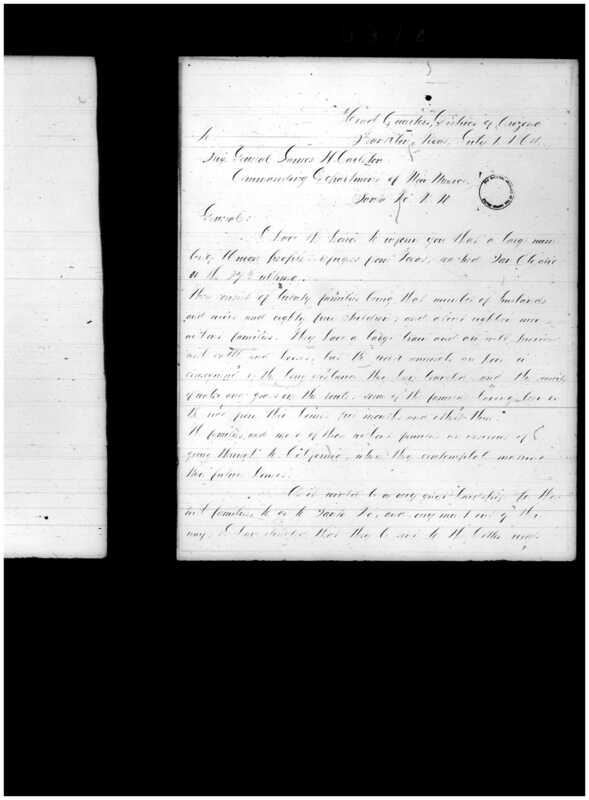 Head Quarters, District of Arizona
Franklin, Texas, July 1, 1864.
To
Brig. General James H. Carleton
Commanding Department of New Mexico
Santa Fé N. M.
General:
I have the honor to inform you that a large num
ber of Union people refugees from Texas, reached San Elizario
on the 29th ultimo.
They consist of twenty families being that number of husbands
and wives and eighty five children; and about eighteen men
without families. They have a large train and are well provided
with cattle and horses, but the and animals are poor in
consequence of the long distance they have traveled, and the scarcity
of water and grass on the route; some of the families having been on
the road from their homes six months and others three.
The families, and most of the without families are desirous of
going through to California, where they contemplate making
their future homes.
As it would be a very great hardship for these
families to go to Santa Fe, and very much out of the
way, I have directed that they be sent to